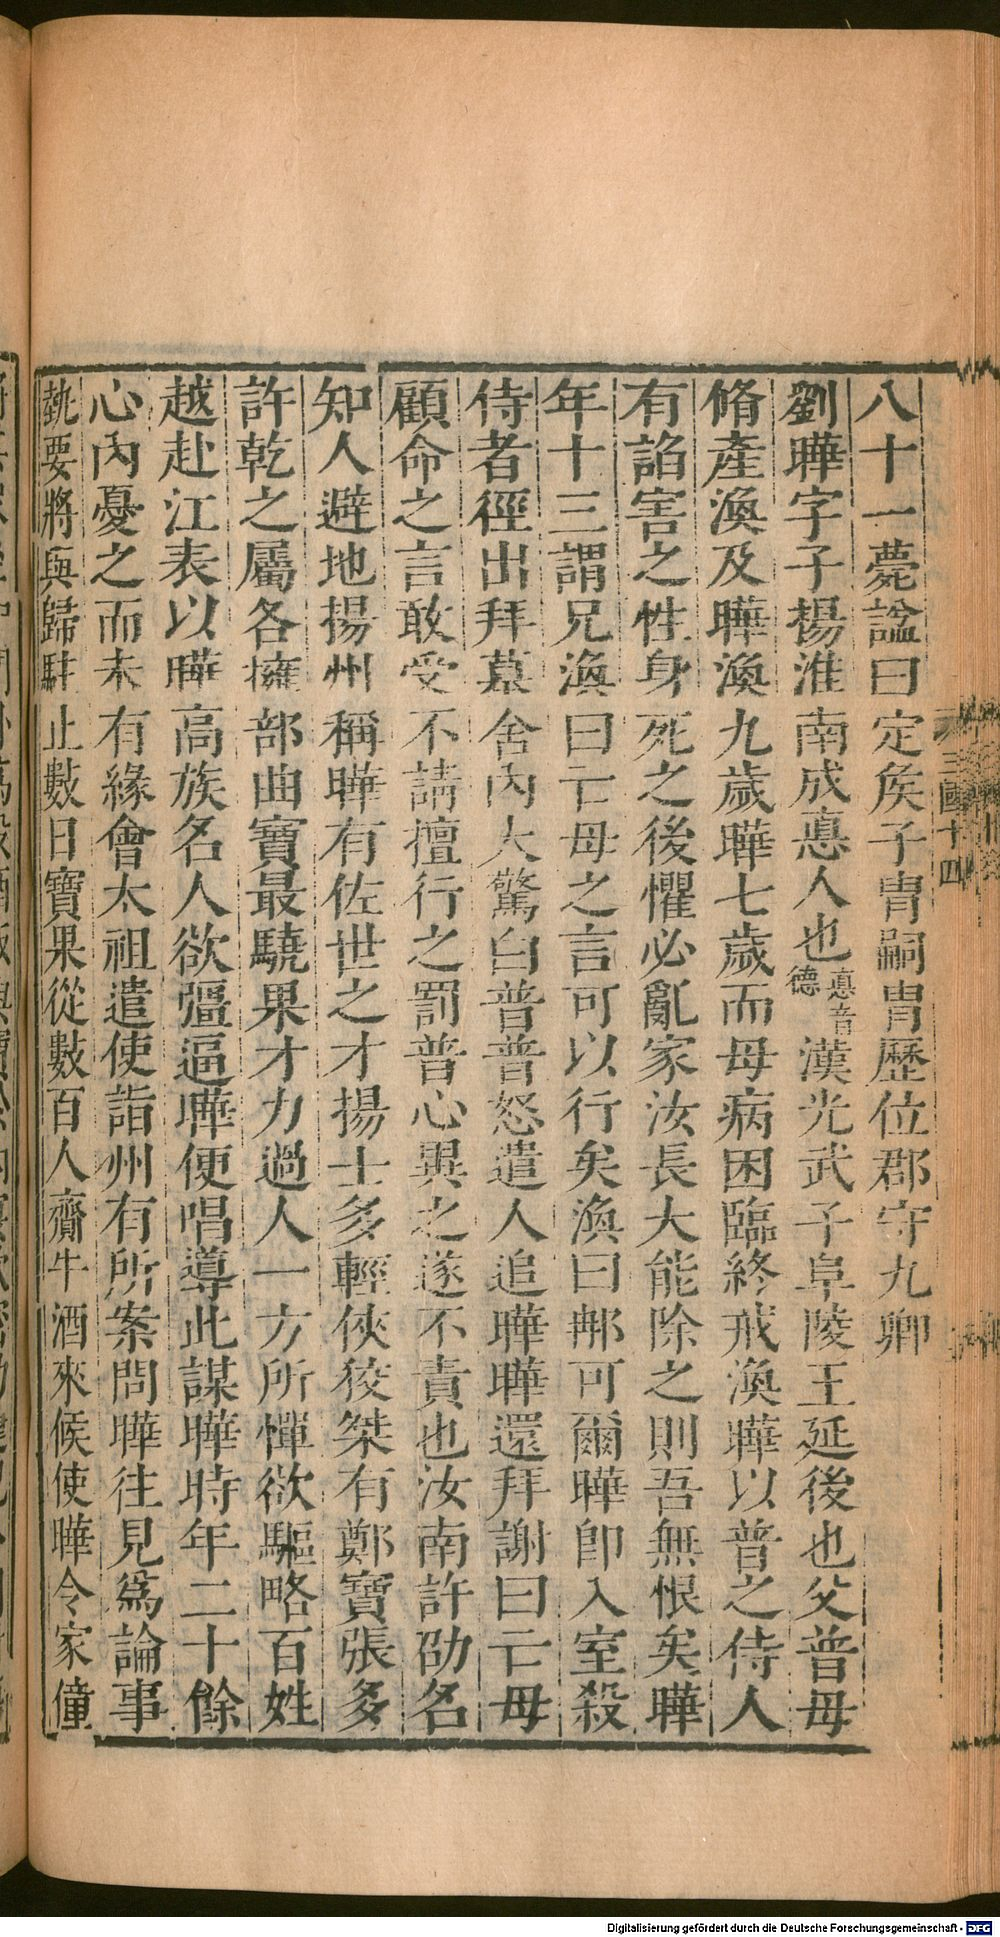 八十一薨諡曰定矦子冑嗣冑歷位郡守九卿
劉曄字子揚淮南成悳人也悳音德漢光武子阜陵王延後也父普母
脩產渙及曄渙九歲曄七歲而母病困臨終戒渙曄以普之侍人
有諂害之性身死之後懼必亂家汝長大能除之則吾無恨矣曄
年十三謂兄渙曰亡母之言可以行矣渙曰那可爾曄卽入室殺
侍者徑出拜墓舍內大驚白普普怒遣人追曄曄還拜謝曰亡母
顧命之言敢受不請擅行之罰普心異之遂不責也汝南許劭名
知人避地揚州稱曄有佐世之才揚士多輕俠狡桀有鄭寶張多
許乾之屬各擁部曲寶最驍果才力過人一方所憚欲驅略百姓
越赴江表以曄高族名人欲彊逼曄便唱導此謀曄時年二十餘
心內憂之而未有緣會太祖遣使詣州有所案問曄往見爲論事
埶要將與歸駐止數日寶果從數百人齎牛酒來候使曄令家僮
三國十四
Digitalisierung gefördert durch die Deutsche Forschungsgemeinschaft - DFG